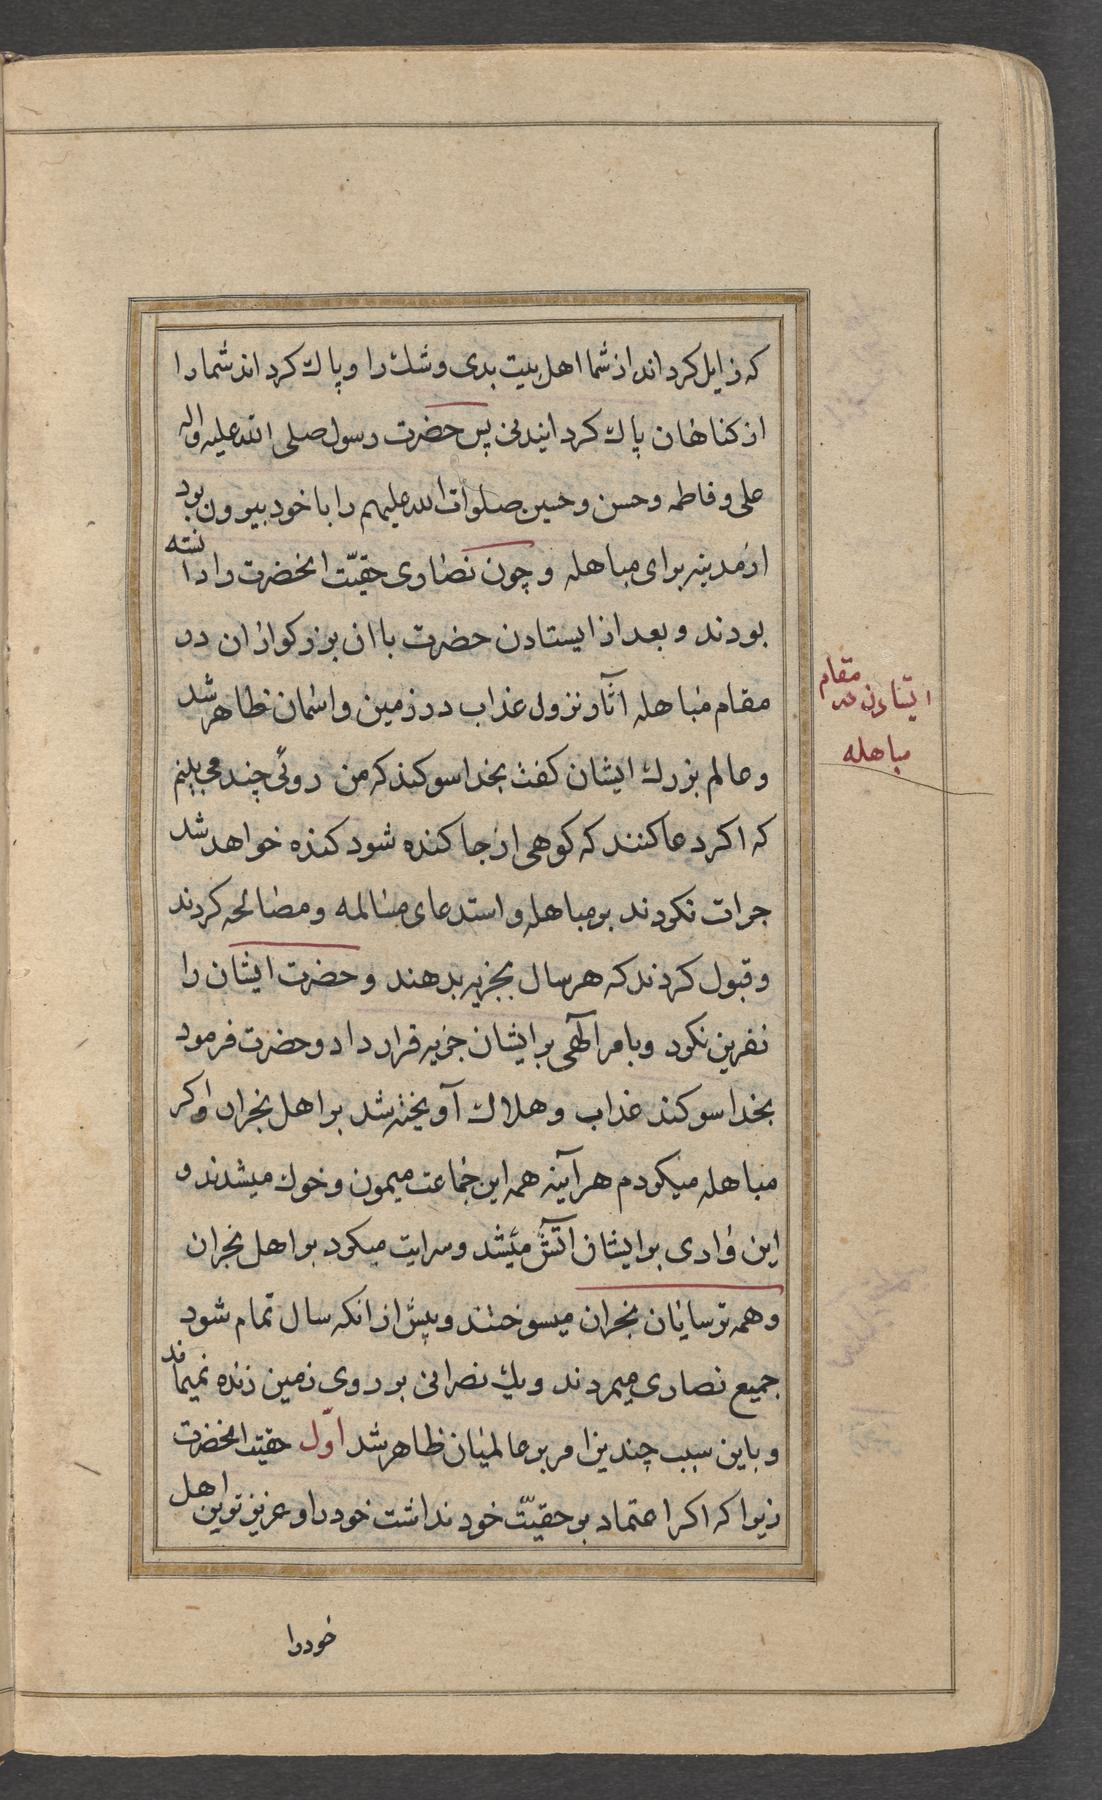 که زایل کرداند از شما اهل بیت بدی و شك را و پاك کرداند شما را
از کناهان پاك کردایندنی پس حضرت رسول صلی الله علیه واله
علی و فاطمه و حسن و حسین صلوات الله علیهم را با خود بیرون بود
از مدینه برای مباهله و چون نصاری حقیّت انحضرت را دانسته
بودند و بعد از ایستادن حضرت با ان بزرکواران در
مقام مباهله اثآر نزول عذاب در زمین و اسمان ظاهر شد
و عالم بزرك ایشان کفت بخدا سوکند که من روئی چند می بینم
که اکر دعا کنند که کوهی از جا کنده شود کنده خواهد شد
جرات نکردند بر مباهله و استدعای مسالمه و مصالحه کردند
و قبول کردند که هر سال بجزیه بدهند و حضرت ایشان را
نفرین نکرد و بامر الٓهی بر ایشان جزیه قرار داد و حضرت فرمود
بخدا سوکند عذاب و هلاك آویخته شد بر اهل نجران و اکر
مباهله میکردم هرآینه همه این جماعت میمون و خوك میشدند و
این وادی بر ایشان آتش میشد و سرایت میکرد بر اهل نجران
و همه ترسایان نجران میسوختند و پیش از انکه سال تمام شود
جمیع نصاری میمردند و یك نصرانی بر روی زمین زنده نمیماند
و باین سبب چندین امر بر عالمیان ظاهر شد اوّل حقیت انحضرت
زیرا که اکر اعتماد بر حقیّت خود نداشت خود را و عزیزترین اهل
خود را
ایستادن در مقام
مباهله